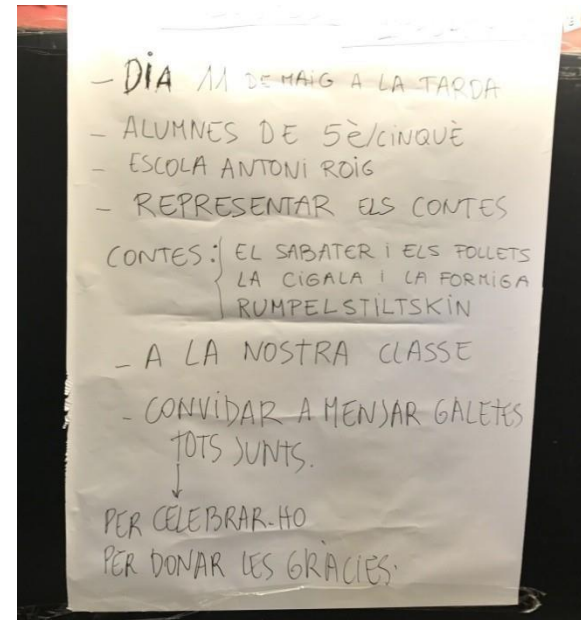 - DIA 11 DE MAIG A LA TARDA
- ALUMNES DE 5È/CINQUÈ
- ESCOLA ANTONI ROIG
- REPRESENTAR ELS CONTES
CONTES: { EL SABATER I ELS FOLLETS
LA CIGALA I LA FORMIGA
RUMPELSTILTSKIN
- A LA NOSTRA CLASSE
- CONVIDAR A MENJAR GALETES
TOTS JUNTS.
↓
PER CELEBRAR-HO
PER DONAR LES GRÀCIES.